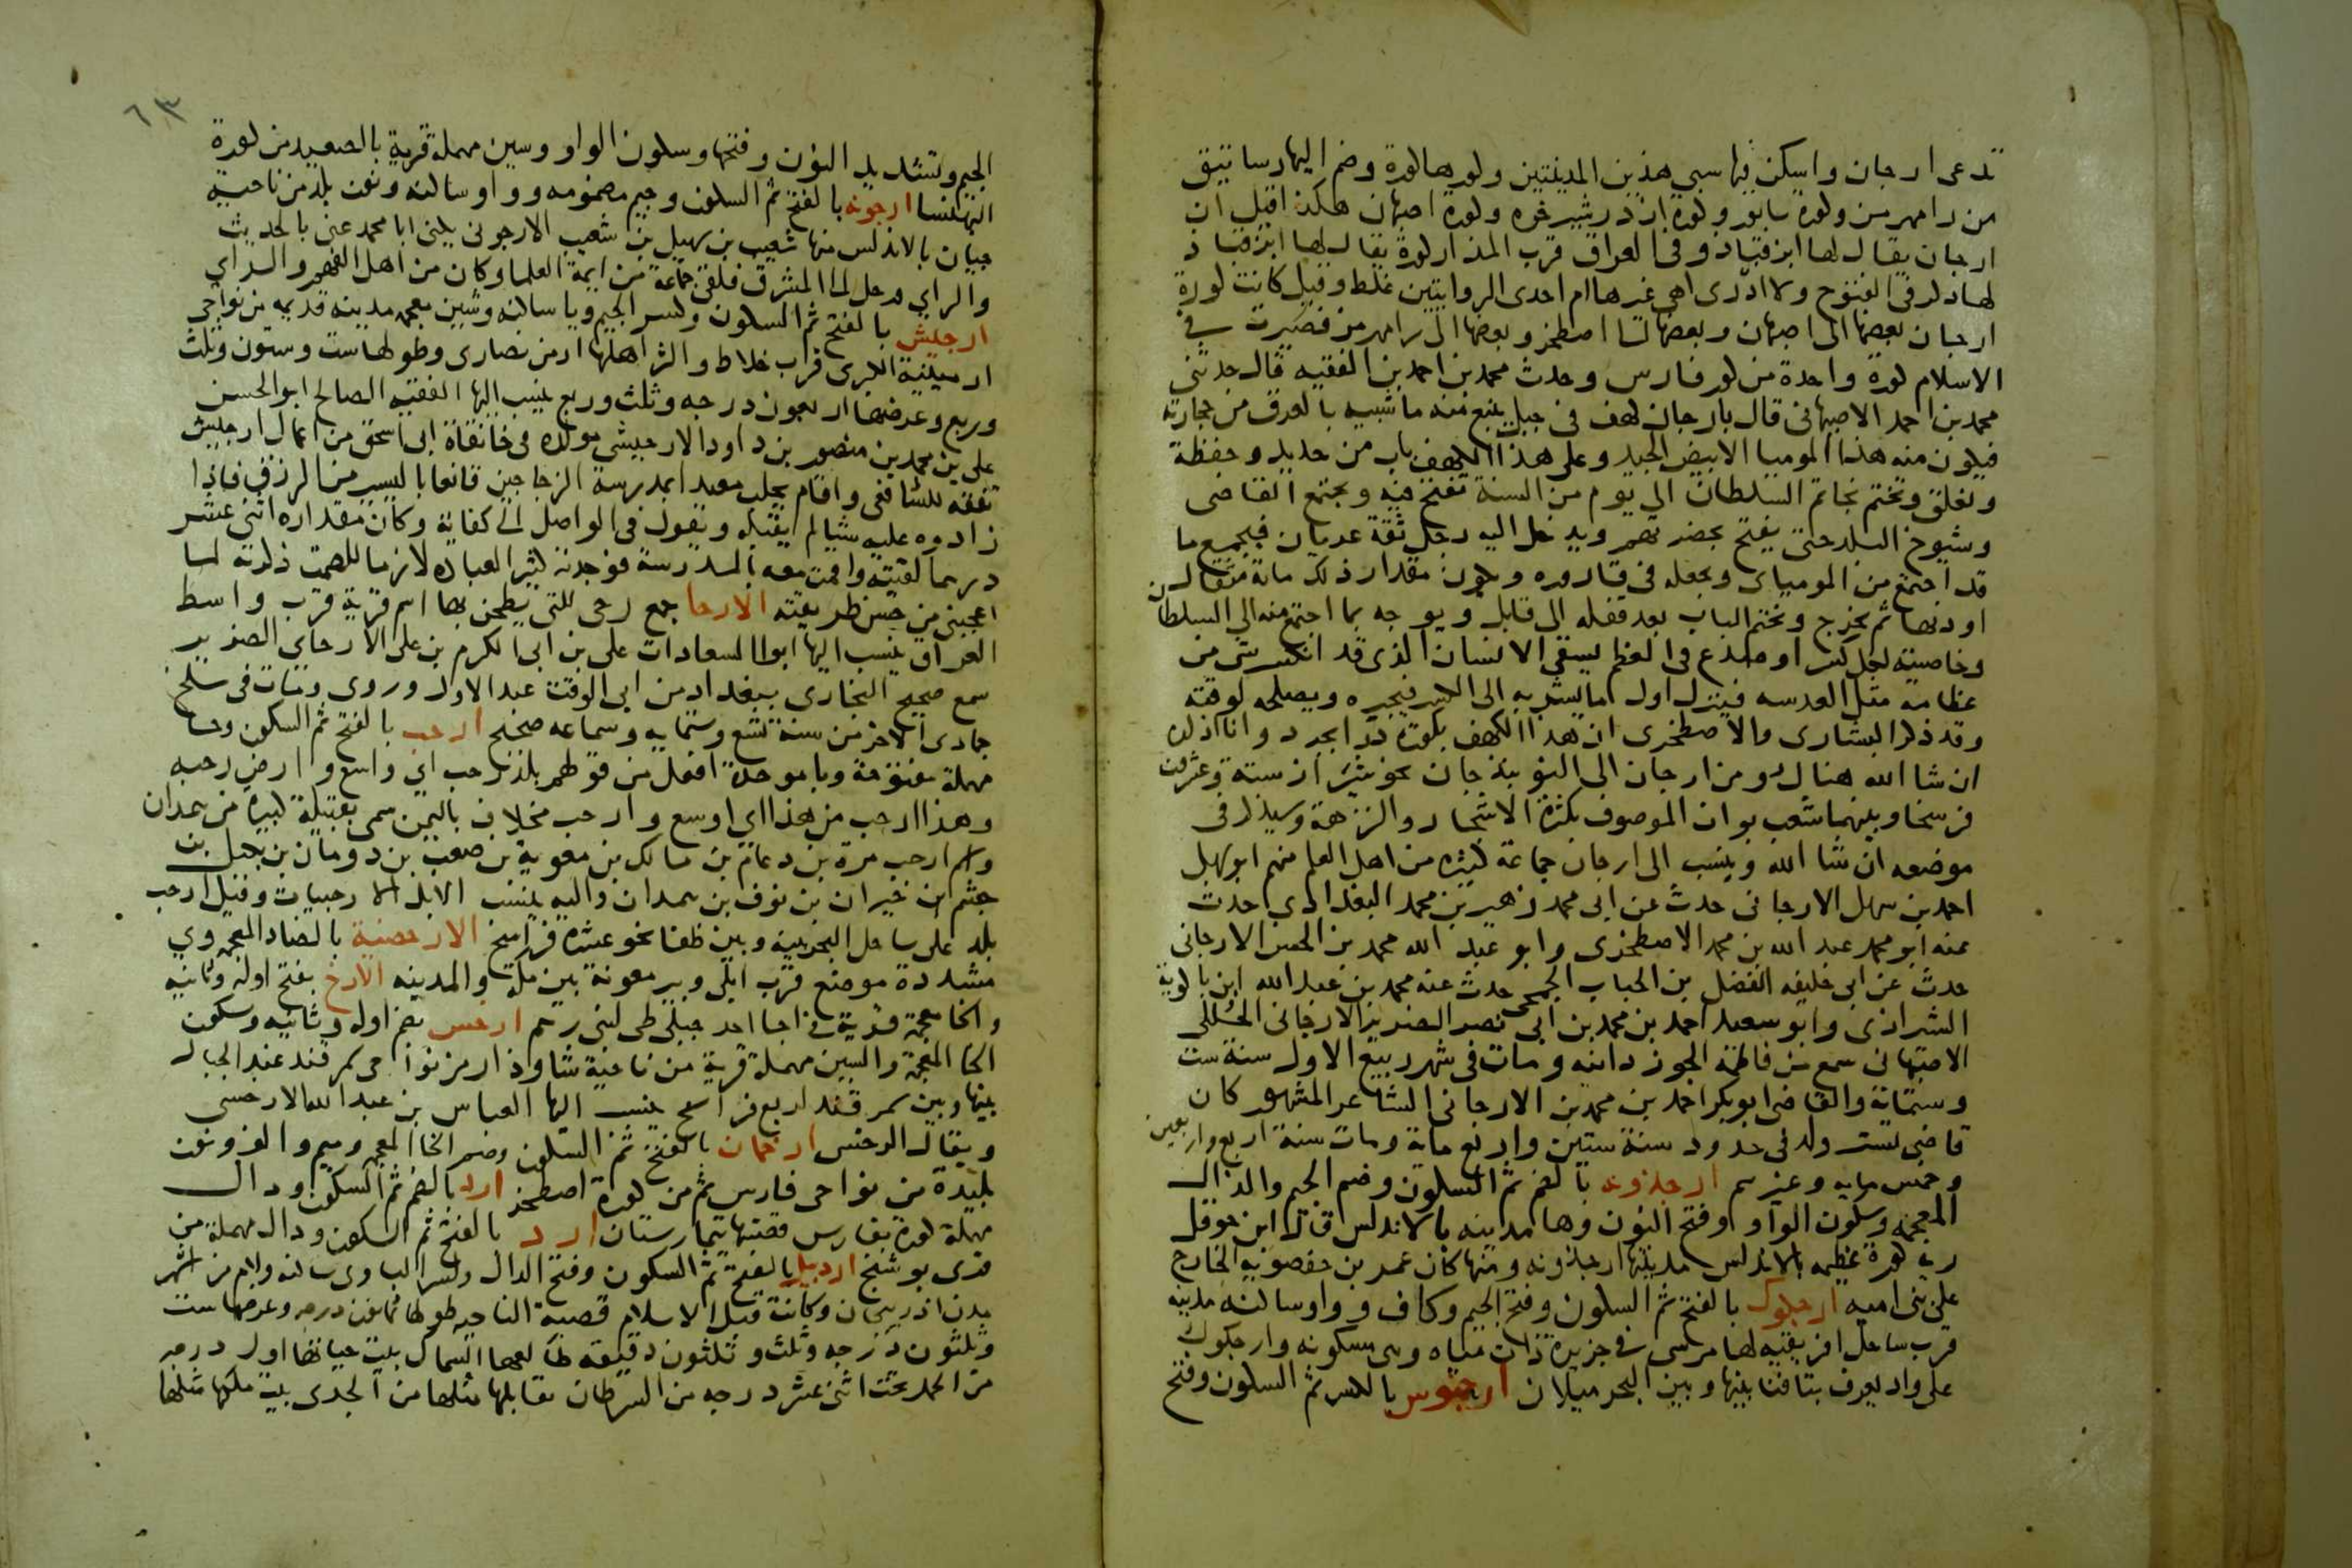 تدعى ارجان واسكن فيها سبي هذين المدينتين وكورها كورة وضم اليها رساتيق
من رامهرمز وكورة سابور وكورة اردشير خره وكورة اصبهان هكذا قيل ان
ارجان يقال لها ابرقباذ وفى العراق قرب المذار كورة يقال لها ابزقباذ
لها ذكر فى الفتوح ولا ادرى اهى غيرها ام احدى الروايتين غلط وقيل كانت كورة
ارجان بعضها الى اصبهان وبعضها الى اصطخر وبعضها الى رامهرمز فصيرت فى
الاسلام كورة واحدة من كور فارس وحدث محمد بن احمد بن الفقيه قال حدثنى
محمد بن احمد الاصبهانى قال بارجان كهف فى جبل ينبع منه ما شبيه بالعرق من حجارته
فيكون منه هذا الموميا الابيض الجيد وعلى هذا الكهف باب من حديد وحفظة
ويغلق ويختم بخاتم السلطان الى يوم من السنة تفتح فيه ويجتمع القاضى
وشيوخ البلد حتى يفتح بحضرتهم ويدخل اليه رجل ثقة عريان فيجمع ما
قد اجتمع من المومياى ويجعله فى قاروره ويكون مقدار ذلك مائة مثقال
او دونها ثم يخرج ويختم الباب بعد قفله الى قابل ويوجه بما اجتمع منه الى السلطان
وخاصيته لكل كسر او صدع فى العظم يسقى الانسان الذى قد انكسر شى من
عظامه مثل العدسه فينزل اول ما يشربه الى الكسر فيجبره ويصلحه لوقته
وقد ذكر البشارى والاصطخرى ان هذا الكهف بكورة درابجرد وانا اذكره
ان شا الله هناك ومن ارجان الى النوبندجان نحو شيراز ستة وعشرون
فرسخا وبينهما شعب بوان الموصوف بكثرة الاشجار والنزهة وسيذكر فى
موضعه ان شا الله وينسب الى ارجان جماعة كثيره من اهل العلم منهم ابو سهل
احمد بن سهل الارجانى حدث عن ابى محمد زهير بن محمد البغدادى حدث
عنه ابو محمد عبد الله بن محمد الاصطخرى وابو عبد الله محمد بن الحسن الارجانى
حدث عن ابى خليفه الفضل بن الحباب الجمحى حدث عنه محمد بن عبد الله ابن باكوية
الشيرازى وابو سعيد احمد بن محمد بن ابى نصر الضرير الارجانى الجللكى
الاصبهانى سمع من فاطمة الجوزدانيه ومات فى شهر ربيع الاول سنة ست
وستمائة والقاضى ابو بكر احمد بن محمد بن الارجانى الشاعر المشهور كان
قاضى تستر ولد فى حدود سنة ستين واربع مائة ومات سنة اربع واربعين
وخمس مايه وغيرهم ارجذونه بالضم ثم السكون وضم الجيم والذال
المعجمه وسكون الواو وفتح النون وها مدينه بالاندلس قال ابن حوقل
ريه كورة عظيمه بالاندلس مدينتها ارجذونه ومنها كان عمر بن حفصون الخارج
على بنى اميه ارجكوك بالفتح ثم السكون وفتح الجيم وكاف وواو ساكنه مدينه
قرب ساحل افريقيه لها مرسى فى جزيرة ذات مياه وهى مسكونه وارجكوك
على واد يعرف بتافنا بينها وبين البحر ميلان ارجنوس بالكسر ثم السكون وفتح
٦٣
الجيم وتشديد النون وفتحها وسكون الواو وسين مهملة قرية بالصعيد من كورة
البهنسا ارجونه بالفتح ثم السكون وجيم مضمومه وواو ساكنه ونون بلد من ناحية
جيان بالاندلس منها شعيب بن سهيل بن شعيب الارجونى يكنى ابا محمد عنى بالحديث
والراي ورحل الى المشرق فلقى جماعة من ايمة العلما وكان من اهل الفهم والراي
ارجيش بالفتح ثم السكون وكسر الجيم ويا ساكنه وشين معجمه مدينه قديمه من نواحى
ارمينية الكبرى قرب خلاط واكثر اهلها ارمن نصارى وطولها ست وستون وثلث
وربع وعرضها اربعون درجه وثلث وربع ينسب اليها الفقيه الصالح ابو الحسن
على بن محمد بن منصور بن داود الارجيشى مولده فى خانقاة ابى اسحق من اعمال ارجيش
تفقه للشافعى واقام بحلب معيدا بمدرسة الزجاجين قانعا باليسير من الرزق فاذا
زادوه عليه شيا لم يقبله ويقول فى الواصل الى كفاية وكان مقداره اثنى عشر
درهما لقيته واقمت معه بالمدرسة فوجدته كثير العباده لازما للصمت ذكرته لما
اعجبنى من حسن طريقته الارحا جمع رحى التى يطحن بها اسم قرية قرب واسط
العراق ينسب اليها ابو السعادات على بن ابى الكرم بن على الارحاى الضرير
سمع صحيح البخارى ببغداد من ابى الوقت عبد الاول وروى ومات فى سلخ
جمادى الاخر من سنة تسع وستمايه وسماعه صحيح ارحب بالفتح ثم السكون وحا
مهملة مفتوحة وبا موحدة افعل من قولهم بلد رحب اي واسع وارض رحبه
وهذا ارحب من هذا اي اوسع وارحب مخلاف باليمن سمى بقبيلة كبيرة من همدان
واسم ارحب مرة بن دعام بن مالك بن معوية بن صعب بن دومان بن بكيل بن
جشم ابن خيران بن نوف بن همدان واليه ينسب الابل الارحبيات وقيل ارحب
بلد على ساحل البحر بينه وبين ظفا نحو عشرة فراسخ الارحضية بالضاد المعجمه وي
مشددة موضع قرب ابلى وبير معونة بين مكة والمدينه الارخ بفتح اوله وثانيه
والخا معجمة قرية فى اجا احد جبلى طى لبنى رهم ارخس بضم اوله وثانيه وسكون
الخا المعجمة والسين مهملة قرية من ناحية شاوذار من نواحى سمرقند عند الجبال
بينها وبين سمرقند اربع فراسخ ينسب اليها العباس بن عبد الله الارخسى
ويقال الرخسى ارخمان بالفتح ثم السكون وضم الخا المعجمه وميم والف ونون
بليدة من نواحى فارس ثم من كورة اصطخر ارد بالضم ثم السكون ودال
مهملة كورة بفارس قصبتها تيمارستان ارد بالفتح ثم السكون ودال مهملة من
قرى بوشنج اردبيل بالفتح ثم السكون وفتح الدال وكسر البا وى ساكنه ولام من اشهر
مدن اذربيجان وكانت قبل الاسلام قصبة الناحيه طولها ثمانون درجه وعرضها ست
وثلثون درجه وثلث وثلثون دقيقه طالعها السماك بيت حياتها اول درجه
من الحمل تحت اثنى عشر درجه من السرطان يقابلها مثلها من الجدى بيت ملكها مثلها